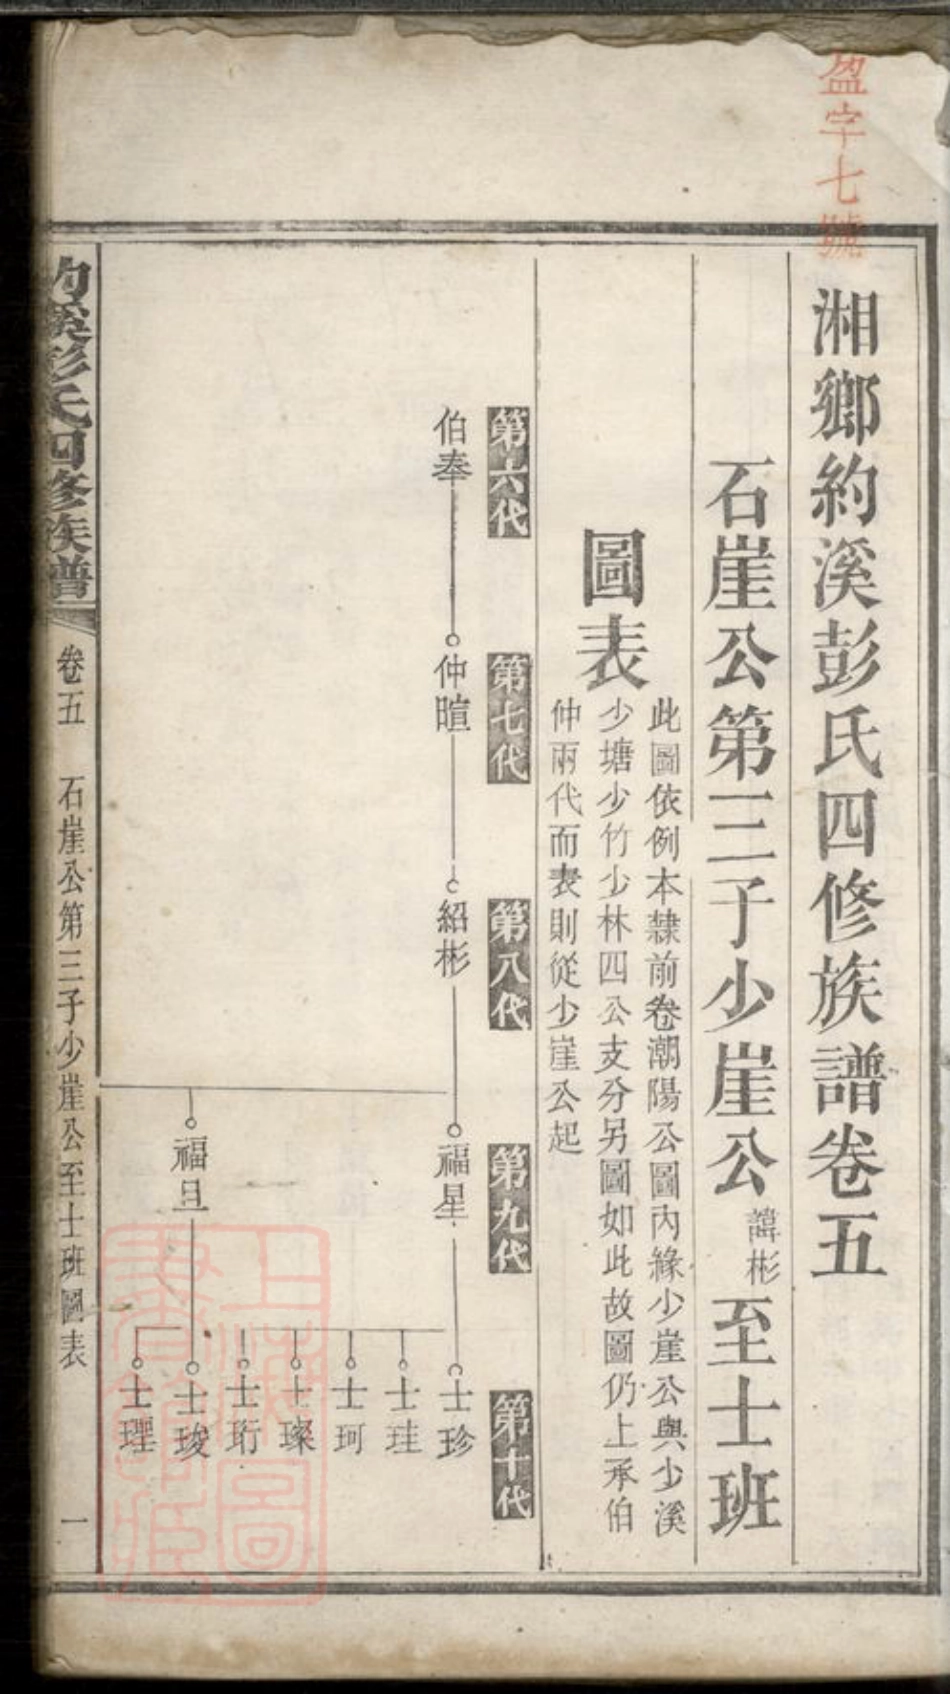 盈字七號
湘鄉約溪彭氏四修族譜卷五
石崖公第三子少崖公諱彬至士班
圖表
此圖依例本隸前卷潮陽公圖內緣少崖公與少溪
少塘少竹少林四公支分另圖如此故圖仍上承伯
仲兩代而表則從少崖公起
第六代
第七代
第八代
第九代
第十代
伯奉
仲暄
紹彬
福星
士珍
士珪
士珂
士璨
士珩
福旦
士琻
士理
約溪彭氏四修族譜
卷五
石崖公第三子少崖公至士班圖表
一
上海圖書館藏